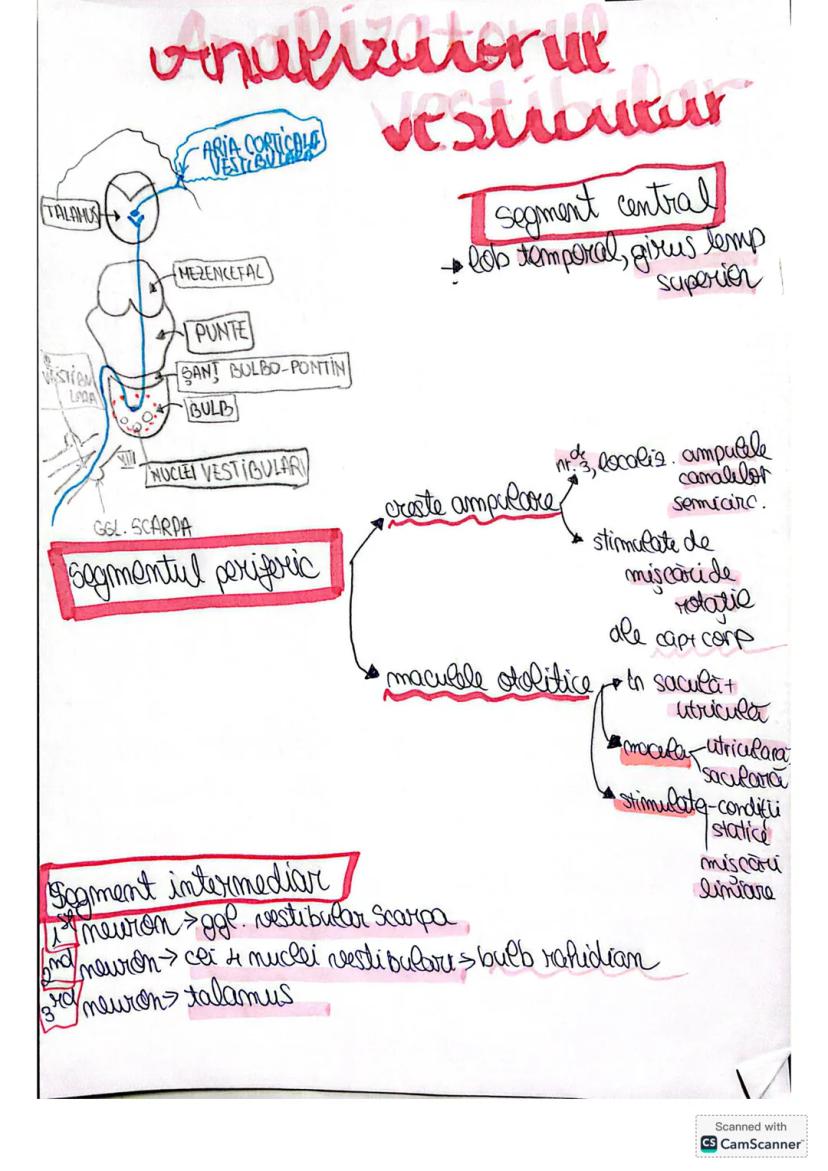 Analizatorul
vestibular
ARIA CORTICALĂ
VESTIBULARĂ
TALAMUS
MEZENCEFAL
PUNTE
ȘANȚ BULBO-PONTIN
BULB
VIII
NUCLEI VESTIBULARI
GGL. SCARPA
segment central
→ lob temporal, girus temp
superior
segmentul periferic
creste ampulare
nr. de 3, localiz. ampulele
canalelor
semicirc.
stimulate de
mișcări de
rotație
ale cap+corp
maculele otolitice
în saculă+
utriculă
macula utriculară
saculară
stimulate-condiții
statice
mișcări
liniare
segment intermediar
1st neuron → ggl. vestibular Scarpa
2nd neuron → cei 4 nuclei vestibulari → bulb rahidian
3rd neuron → talamus
Scanned with
CS CamScanner